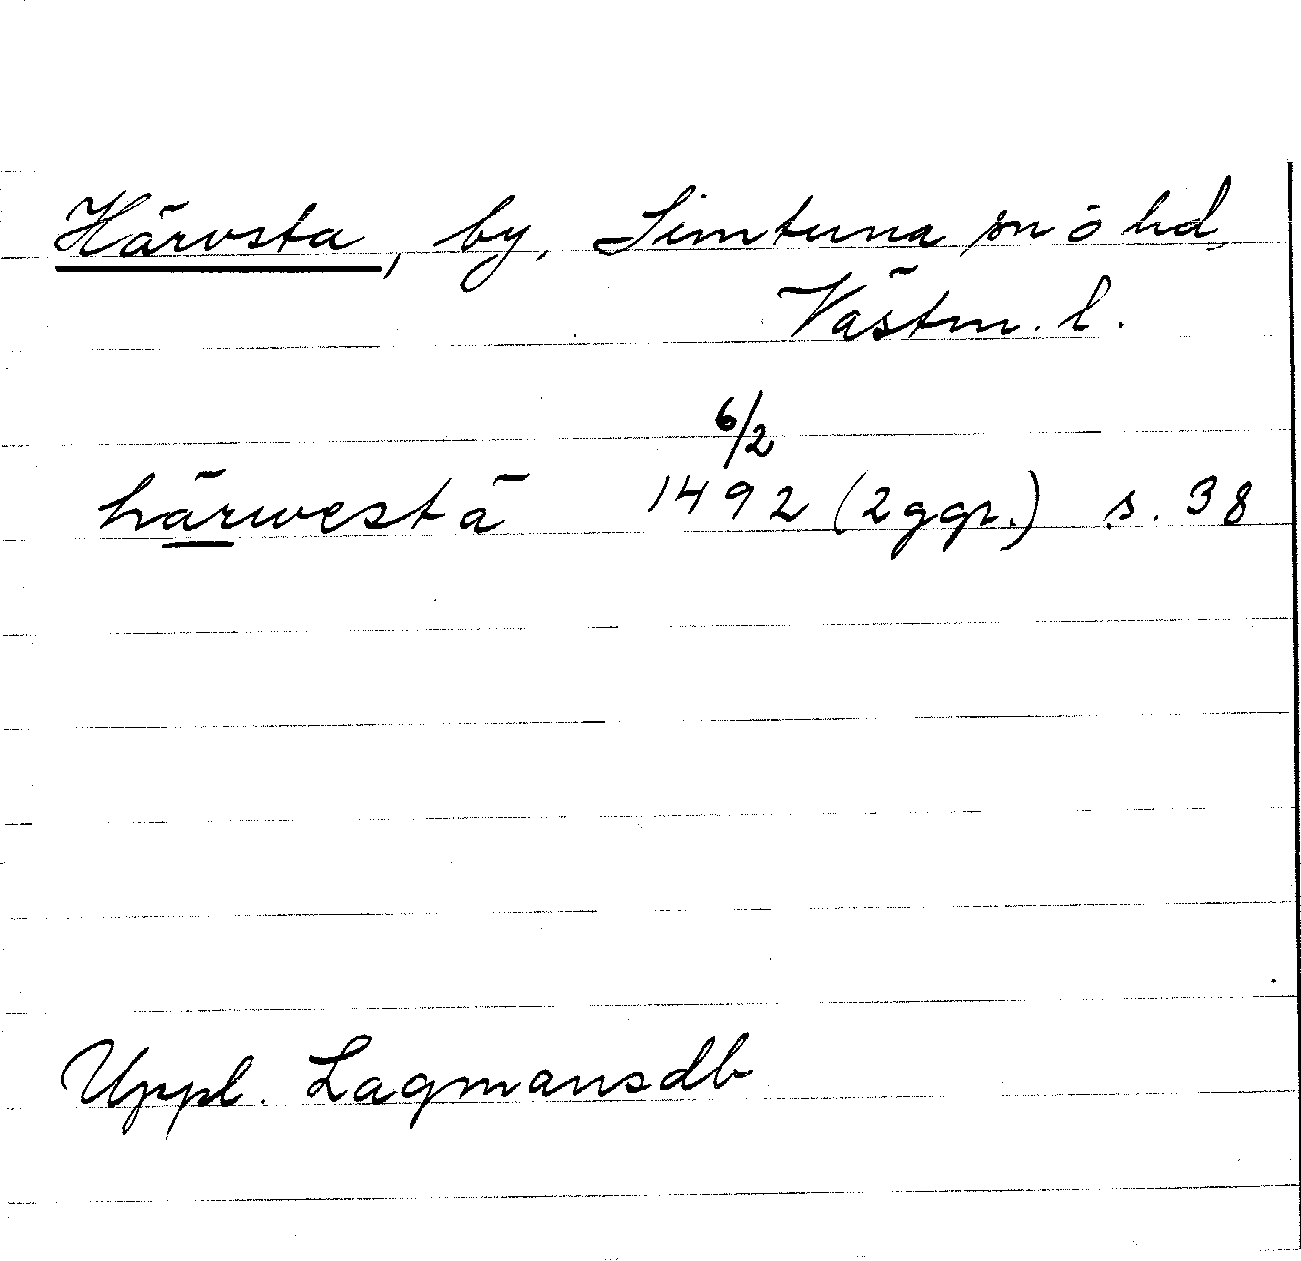 Härvsta, by, Simtuna sn o hd,
Västm. l.
6/2
härwestä 1492 (2 ggr.) s. 38
Uppl. Lagmansdb